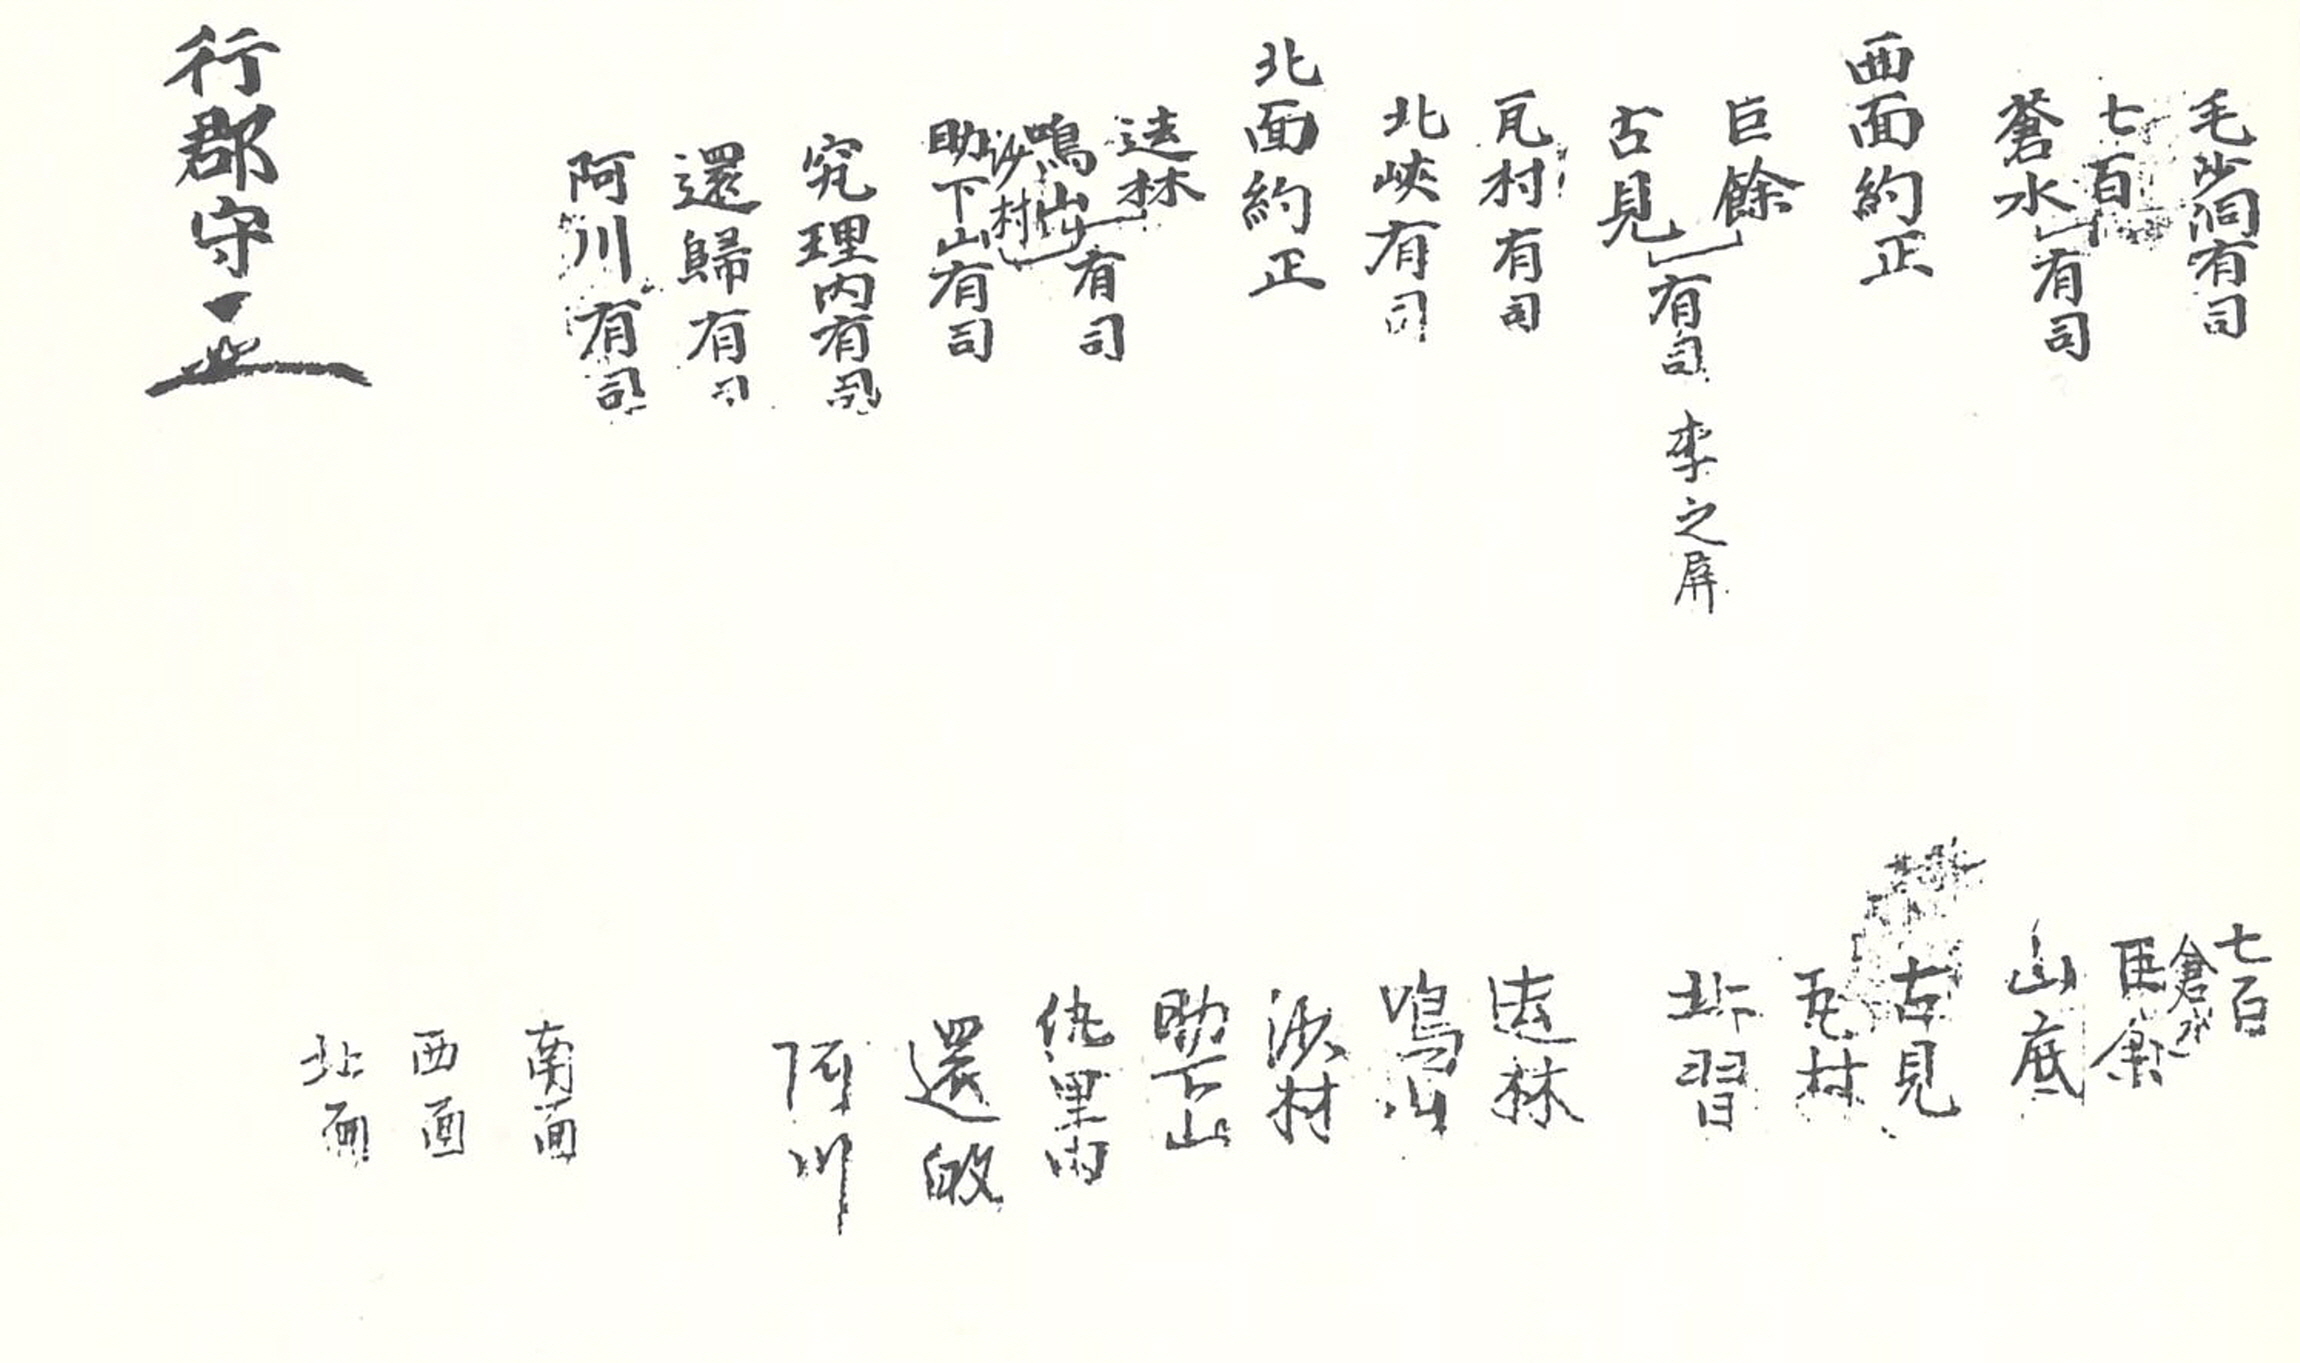 毛沙洞有司
七百
蒼水有司
西面約正
巨餘
古見有司 李之屏
瓦村有司
北峽有司
北面約正
逺林
鳴山有司
沙村
助下山有司
究理內有司
還歸有司
阿川有司
行郡守
七百
倉水
巨余
山底
古見
瓦村
北習
逺林
鳴山
沙村
助下山
仇里內
還
阿川
南面
西面
北面